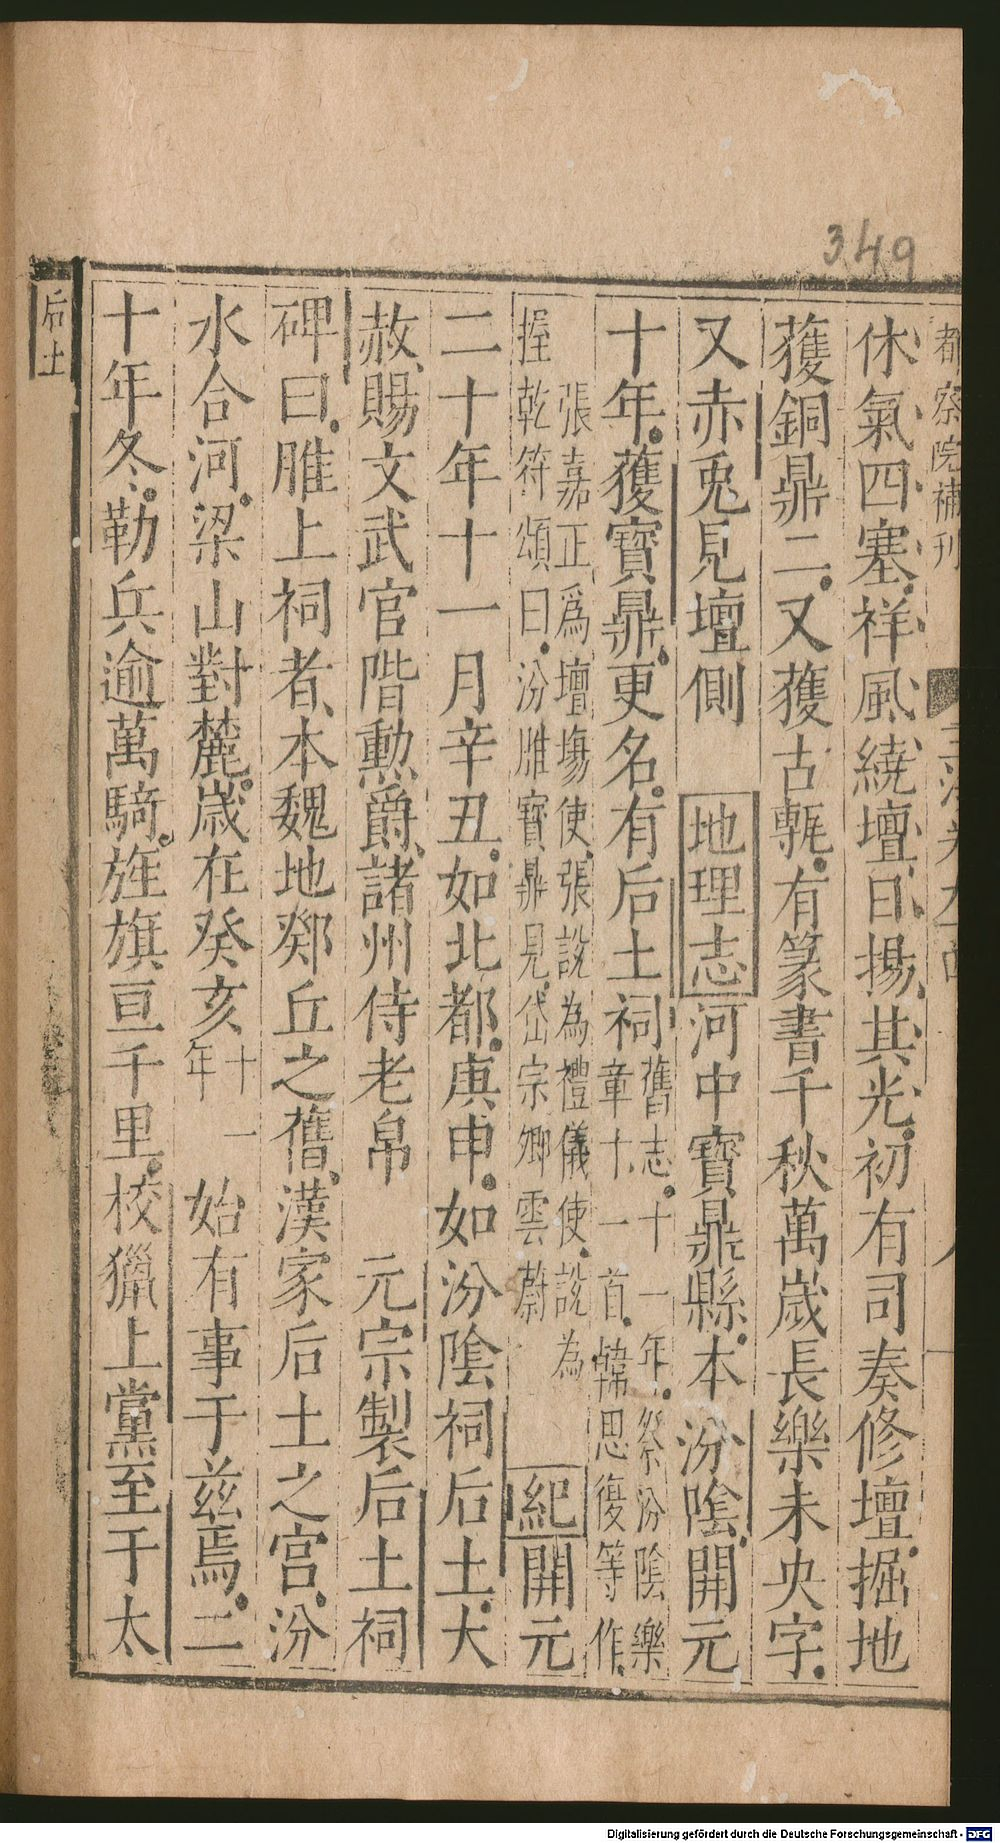 349
都察院補刊
休氣四塞祥風繞壇日揚其光初有司奏修壇掘地
獲銅鼎二又獲古甎有篆書千秋萬歲長樂未央字
又赤兎見壇側 地理志河中寶鼎縣本汾隂開元
十年獲寶鼎更名有后土祠
舊志十一年祭汾隂樂
章十一首韓思復等作
張嘉正爲壇塲使張說為禮儀使說為
握乾符頌曰汾脽寶鼎見岱宗卿雲蔚
紀開元
二十年十一月辛丑如北都庚申如汾隂祠后土大
赦賜文武官階勲爵諸州侍老帛 元宗製后土祠
碑曰脽上祠者本魏地鄈丘之舊漢家后土之宫汾
水合河梁山對麓歲在癸亥
十一
年
始有事于兹焉二
十年冬勒兵逾萬騎旌旗亘千里校獵上黨至于太
后土
Digitalisierung gefördert durch die Deutsche Forschungsgemeinschaft - DFG